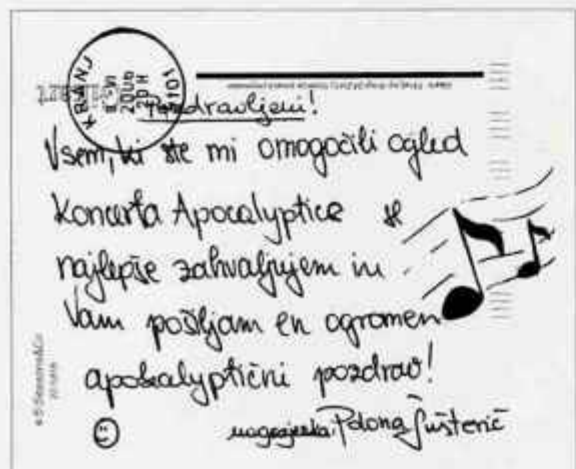 KRANJ
2006
20H
4101
Pozdravljeni!
Vsem, ki ste mi omogočili ogled
koncerta Apocalyptice se
najlepše zahvaljujem in
Vam pošiljam en ogromen
apokalyptični pozdrav!
nagrajenka: Polona Šušterič